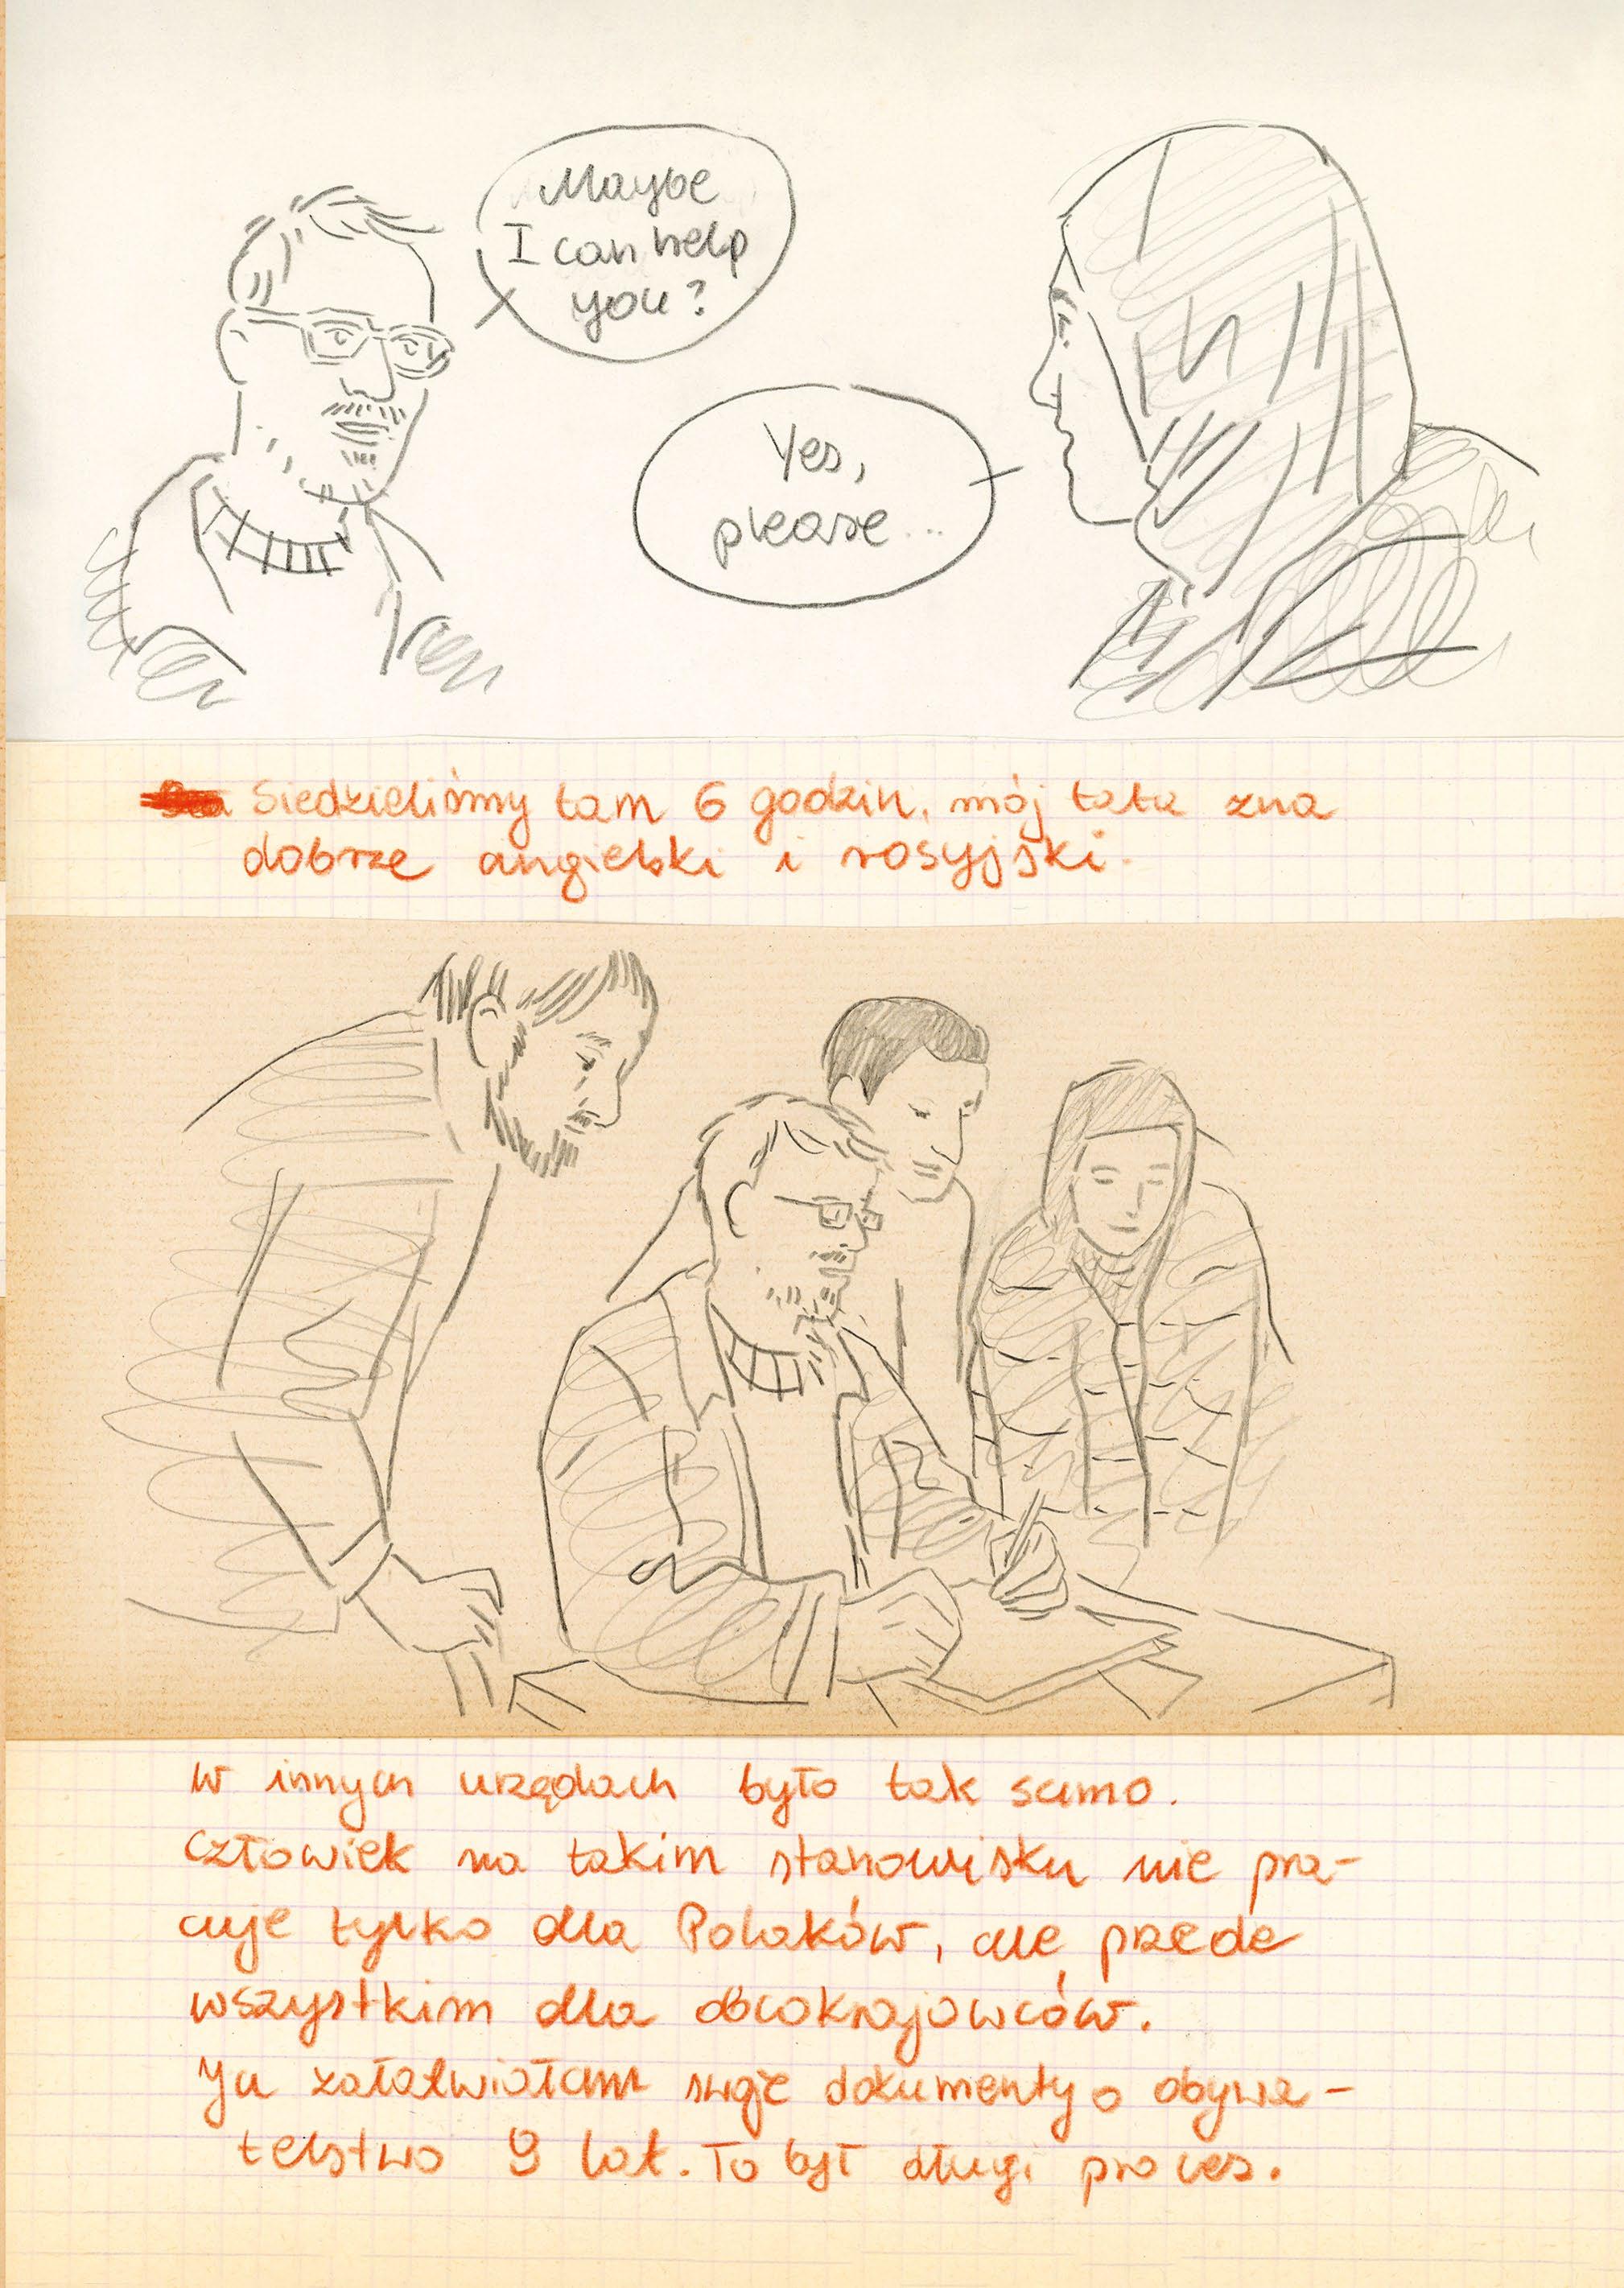 Maybe
I can help
you?
Yes,
please...
Siedzieliśmy tam 6 godzin, mój tata zna
dobrze angielski i rosyjski.
W innych urzędach było tak samo.
Człowiek na takim stanowisku nie pra-
cuje tylko dla Polaków, ale przede
wszystkim dla obcokrajowców.
Ja załatwiałam swoje dokumenty o obywa-
telstwo 9 lat. To był długi proces.